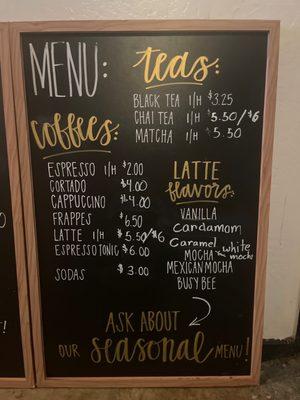 MENU:
teas:
BLACK TEA I/H $3.25
CHAI TEA I/H $5.50/$6
MATCHA I/H $5.50
coffees:
ESPRESSO I/H $2.00
CORTADO $4.00
CAPPUCCINO $4.00
FRAPPES $6.50
LATTE I/H $5.50/$6
ESPRESSO TONIC $6.00
SODAS $3.00
LATTE
flavors:
VANILLA
Cardamom
Caramel white
MOCHA mocha
MEXICAN MOCHA
BUSY BEE
ASK ABOUT
OUR seasonal MENU!